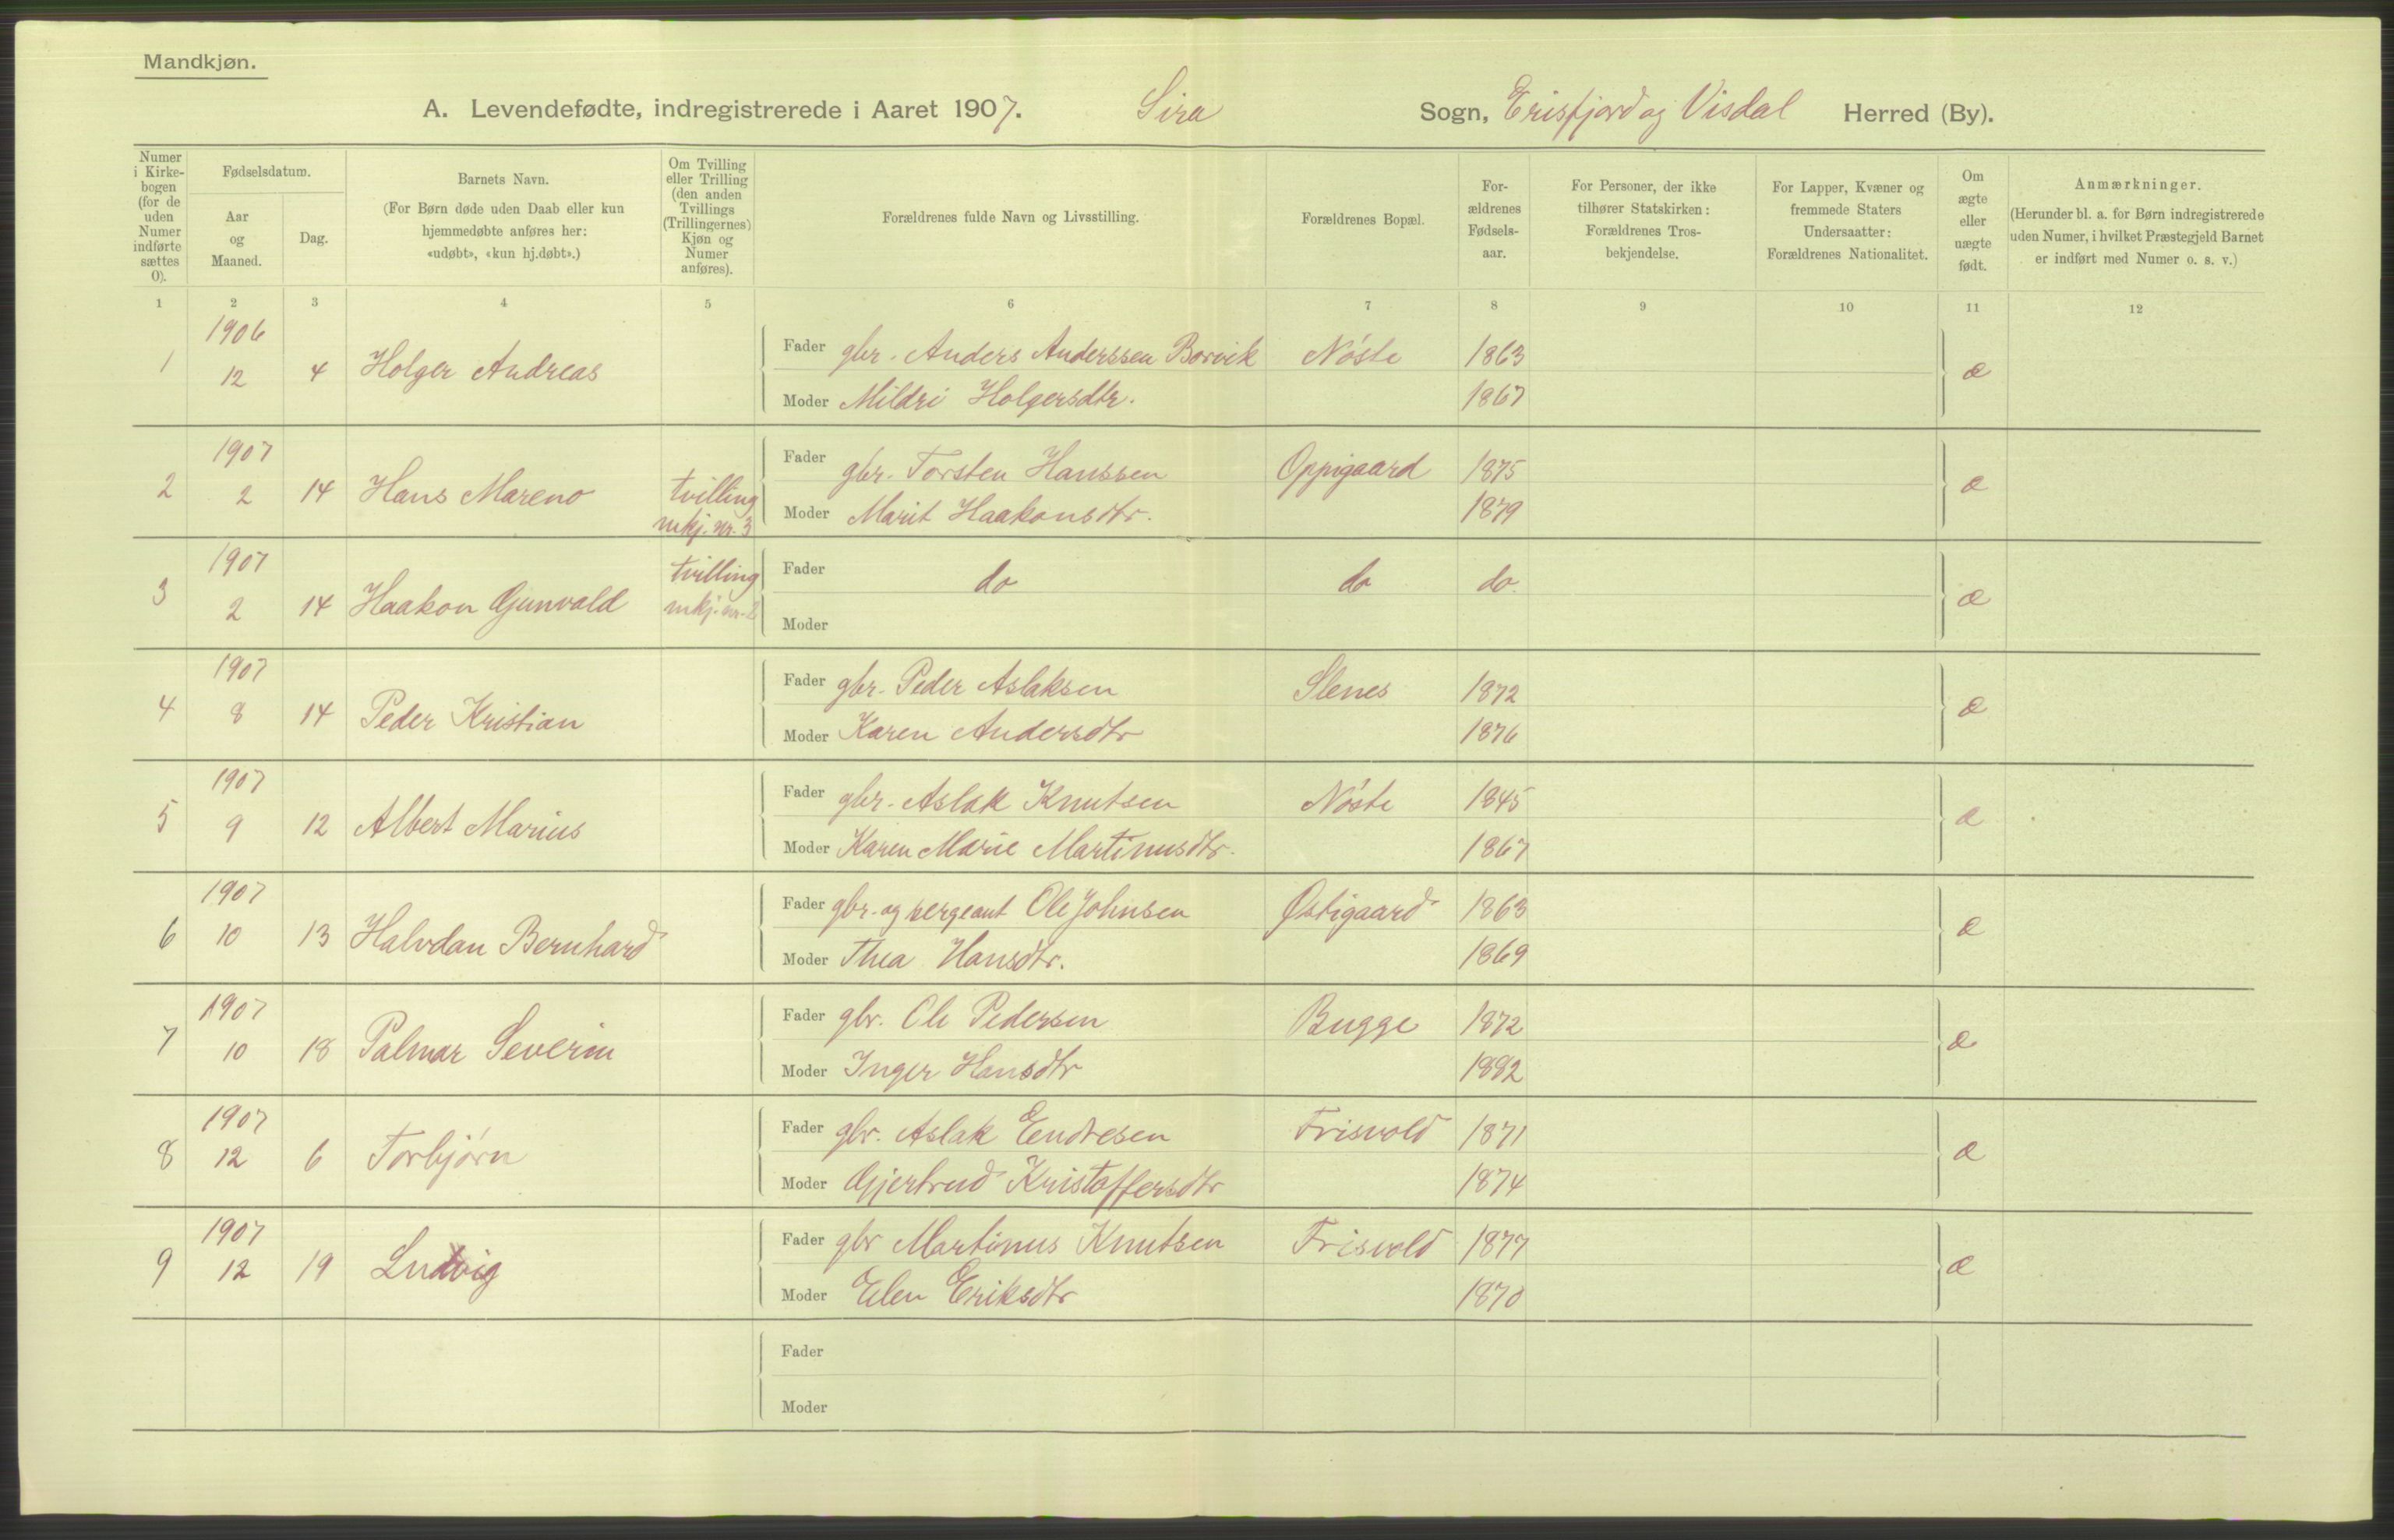 Mandkjøn.
A. Levendefødte, indregistrerede i Aaret 1907. Sira Sogn, Erisfjord og Visdal Herred (By).
Numer i Kirke-bogen (for de uden Numer indførte sættes 0).
Fødselsdatum.
Aar og Maaned.
Dag.
Barnets Navn.
(For Børn døde uden Daab eller kun
hjemmedøbte anføres her:
«udøbt», «kun hj.døbt».)
Om Tvilling eller Trilling (den anden Tvillings (Trillingernes) Kjøn og Numer anføres).
Forældrenes fulde Navn og Livsstilling.
Forældrenes Bopæl.
For-ældrenes Fødsels-aar.
For Personer, der ikke
tilhører Statskirken:
Forældrenes Tros-
bekjendelse.
For Lapper, Kvæner og
fremmede Staters
Undersaatter:
Forældrenes Nationalitet.
Om ægte eller uægte født.
Anmærkninger.
(Herunder bl. a. for Børn indregistrerede
uden Numer, i hvilket Præstegjeld Barnet
er indført med Numer o. s. v.)
1 2 3 4 5 6 7 8 9 10 11 12
1 1906 12 4 Holger Andreas Fader gbr. Anders Anderssen Borvik Nöste 1863 æ
Moder Mildri Holgersdtr. 1867
2 1907 2 14 Hans Mareno tvilling mkj. nr. 3 Fader gbr. Torsten Hanssen Oppigaard 1875 æ
Moder Marit Haakonsdtr. 1879
3 1907 2 14 Haakon Gunvald tvilling mkj. nr. 2 Fader do do do. æ
Moder
4 1907 8 14 Peder Kristian Fader gbr. Peder Aslaksen Slenes 1872 æ
Moder Karen Andersdtr 1876
5 1907 9 12 Albert Marius Fader gbr. Aslak Knutsen Nöste 1845 æ
Moder Karen Marie Martinusdtr. 1867
6 1907 10 13 Halvdan Bernhard Fader gbr. og sergeant Ole Johnsen Østigaard 1863 æ
Moder Thea Hansdtr. 1869
7 1907 10 18 Palmar Severin Fader gbr. Ole Pedersen Bugge 1872 æ
Moder Inger Hansdtr 1882
8 1907 12 6 Torbjörn Fader gbr. Aslak Endresen Frisvold 1871 æ
Moder Gjertrud Kristoffersdtr 1874
9 1907 12 19 Ludvig Fader gbr Martinus Knutsen Frisvold 1877 æ
Moder Elen Eriksdtr 1870
Fader
Moder